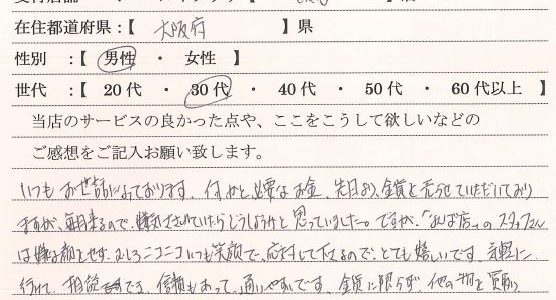 在住都道府県：【 大阪府 】県
性別 ：【 男性 ・ 女性 】
世代 ：【 20代 ・ 30代 ・ 40代 ・ 50代 ・ 60代以上 】
当店のサービスの良かった点や、ここをこうして欲しいなどの
ご感想をご記入お願い致します。
いつもお世話になっております。何かと必要なお金、先日より、金貨を売らせていただいており
ますが、毎月来るので、嫌がられていたらどうしようかと思っていました。ですが、「おば店」のスタッフさん
は嫌な顔とせず、むしろニコニコいつも笑顔で、応対して下さるので、とても嬉しいです。気軽に
行けて、相談でき、信頼もあって、通いやすいです。金貨に限らず、他の物も買取